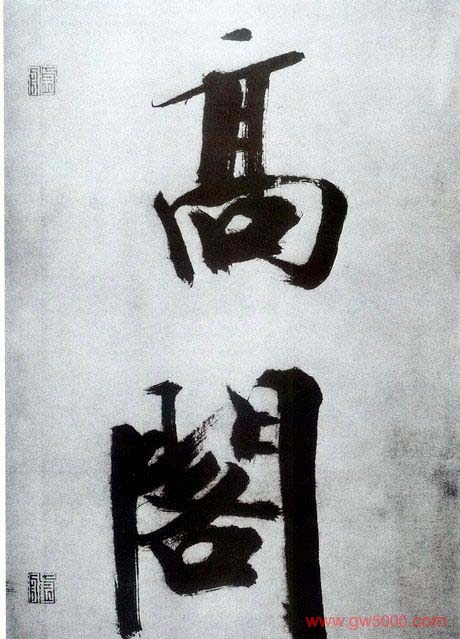 髙
閣
www.gw5000.com